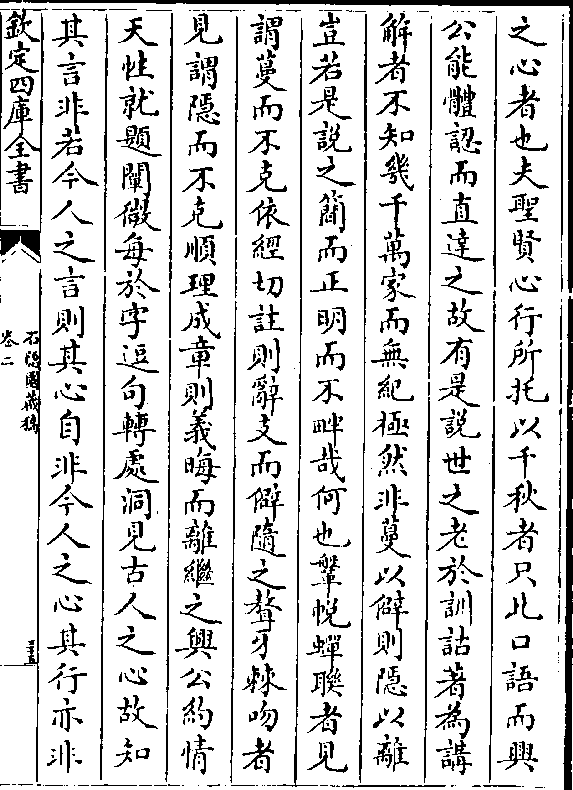 之心者也夫聖賢心行所托以千秋者只此口語而興
公能體認而直達之故有是說世之老於訓詁著為講
解者不知幾千萬家而無紀極然非蔓以僻則隱以離
豈若是說之簡而正明而不畔哉何也鞶帨蟬聯者見
謂蔓而不克依經切註則辭支而僻隨之聱牙棘吻者
見謂隱而不克順理成章則義晦而離繼之興公約情
天性就題闡微每於字逗句轉處洞見古人之心故知
其言非若今人之言則其心自非今人之心其行亦非
欽定四庫全書
石隱園藏稿
卷二
三五